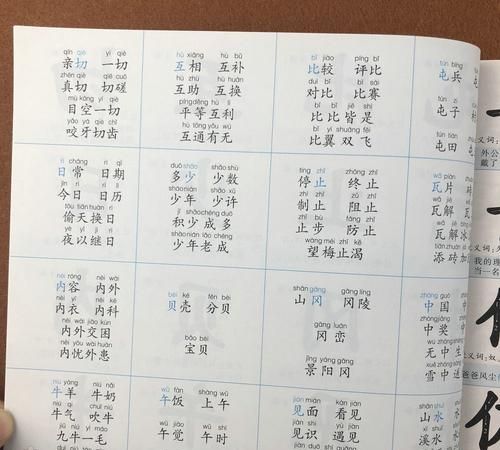 qīn qiè yī qiè
亲切 一切
zhēn qiè qiē cuō
真切 切磋
mù kōng yī qiè
目空一切
yǎo yá qiè chǐ
咬牙切齿
hù xiāng hù bǔ
互相 互补
hù zhù hù huàn
互助 互换
píngděng hù lì
平等互利
hù tōng yǒu wú
互通有无
bǐ jiào píng bǐ
比较 评比
duì bǐ bǐ sài
对比 比赛
bǐ bǐ jiē shì
比比皆是
bǐ yì shuāng fēi
比翼双飞
tún bīng
屯兵
tún zi
屯子
tún tián
屯田
rì cháng rì qī
日常 日期
jīn rì rì lì
今日 日历
tōu tiān huàn rì
偷天换日
yè yǐ jì rì
夜以继日
duō shǎo shǎo shù
多少 少数
shàonián shǎo xǔ
少年 少许
jī shǎochéng duō
积少成多
shàonián lǎo chéng
少年老成
tíng zhǐ zhōng zhǐ
停止 终止
zhì zhǐ zǔ zhǐ
制止 阻止
zhǐ bù fáng zhǐ
止步 防止
wàng méi zhǐ kě
望梅止渴
wǎ piàn
瓦片
瓦解
瓦解冰
添砖加
nèi róng nèi wài
内容 内外
nèi yī nèi kē
内衣 内科
nèi wài jiāo kùn
内外交困
nèi yōu wài huàn
内忧外患
bèi ké fēn bèi
贝壳 分贝
bǎo bèi
宝贝
shān gāng gāng líng
山冈 冈陵
gāng luán
冈峦
jǐng yáng gāng
景阳冈
zhōng guó
中国
中奖
无中生
雪中送
niú yáng niú nǎi
牛羊 牛奶
niú qì chuī niú
牛气 吹牛
jiǔ niú yī máo
九牛一毛
wǔ fàn shàng wǔ
午饭 上午
wǔ jiào wǔ shí
午觉 午时
jiàn miàn kàn jiàn
见面 看见
jiàn shi yù jiàn
见识 遇见
shān shuǐ
山水
xī shuǐ
溪水